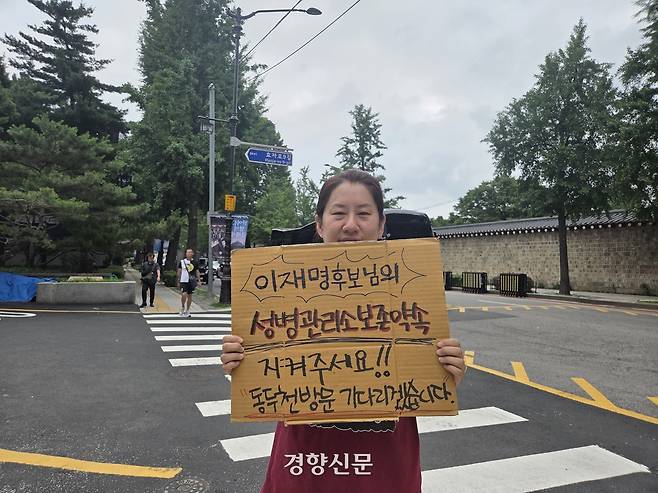 효자로9길
Hyoja-ro 9-gil
이재명후보님의
성병관리소보존약속
지켜주세요!!
"동두천방문 기다리겠습니다.
경향신문